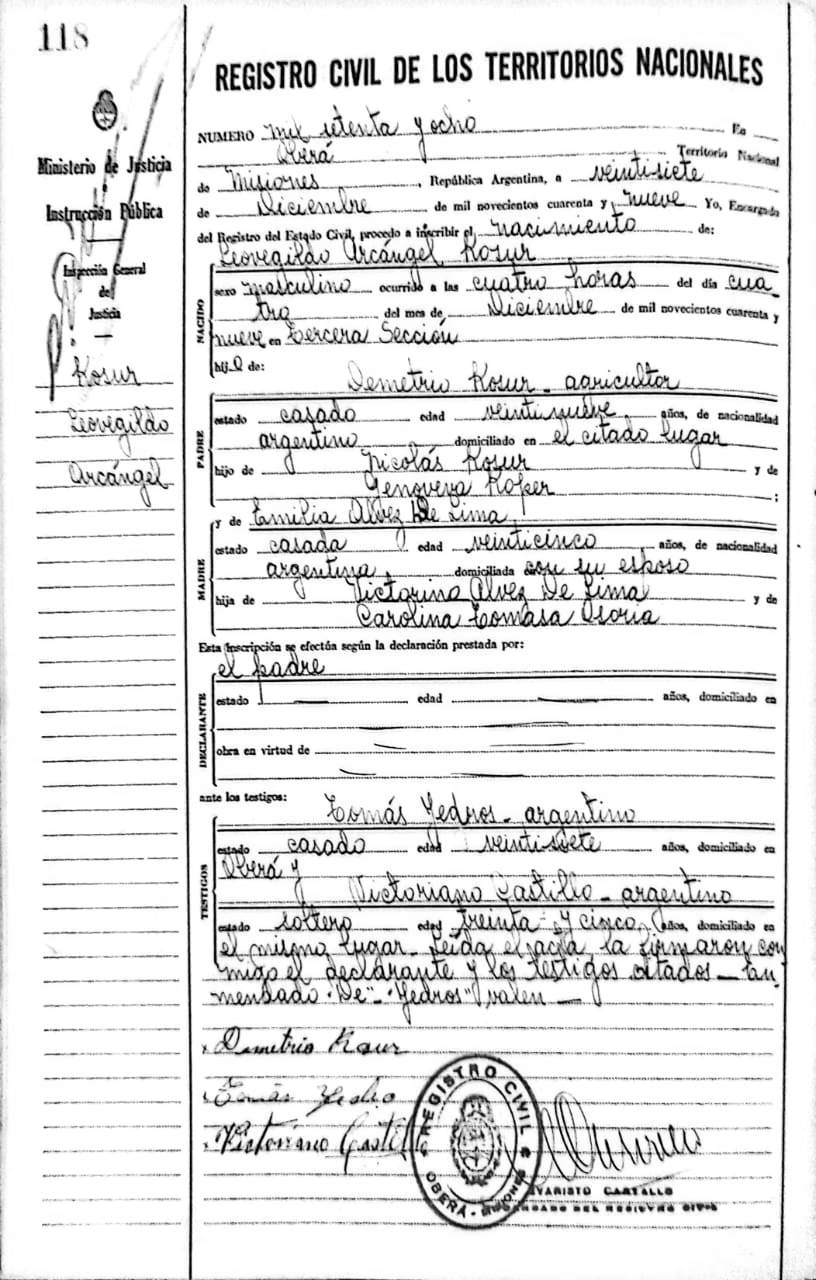 118
REGISTRO CIVIL DE LOS TERRITORIOS NACIONALES
Ministerio de Justicia
e
Instrucción Pública
Inspección General
de
Justicia
Kosur
Leovegildo
Arcángel
NUMERO mil setenta y ocho En
Oberá Territorio Nacional
de Misiones, República Argentina, a veintisiete
de Diciembre de mil novecientos cuarenta y nueve Yo, Encargado
del Registro del Estado Civil, procedo a inscribir el nacimiento de:
Leovegildo Arcángel Kosur
NACIDO
sexo masculino ocurrido a las cuatro horas del día cua-
tro del mes de Diciembre de mil novecientos cuarenta y
nueve en Tercera Sección
hijo de:
Demetrio Kosur - agricultor
PADRE
estado casado edad veintinueve años, de nacionalidad
argentino domiciliado en el citado lugar
hijo de Nicolás Kosur y de
Genoveva Koper ;
y de Emilia Alvez De Lima
MADRE
estado casada edad veinticinco años, de nacionalidad
argentina, domiciliada con su esposo
hija de Victorino Alvez De Lima y de
Carolina Tomasa Osoria
Esta inscripción se efectúa según la declaración prestada por:
el padre
DECLARANTE
estado — edad — años, domiciliado en
obra en virtud de
ante los testigos:
Tomás Yedros - argentino
TESTIGOS
estado casado edad veintisiete años, domiciliado en
Oberá y
Victoriano Castillo - argentino
estado soltero edad treinta y cinco, años, domiciliado en
el mismo lugar. Leída el acta la firmaron con-
migo el declarante y los testigos citados — En-
mendado "De" - "Yedros" valen —
x Demetrio Kosur
x Tomás Yedro
x Victoriano Castillo
REGISTRO CIVIL
OBERÁ - MISIONES
EVARISTO CARTALLO
ENCARGADO DEL REGISTRO CIVIL